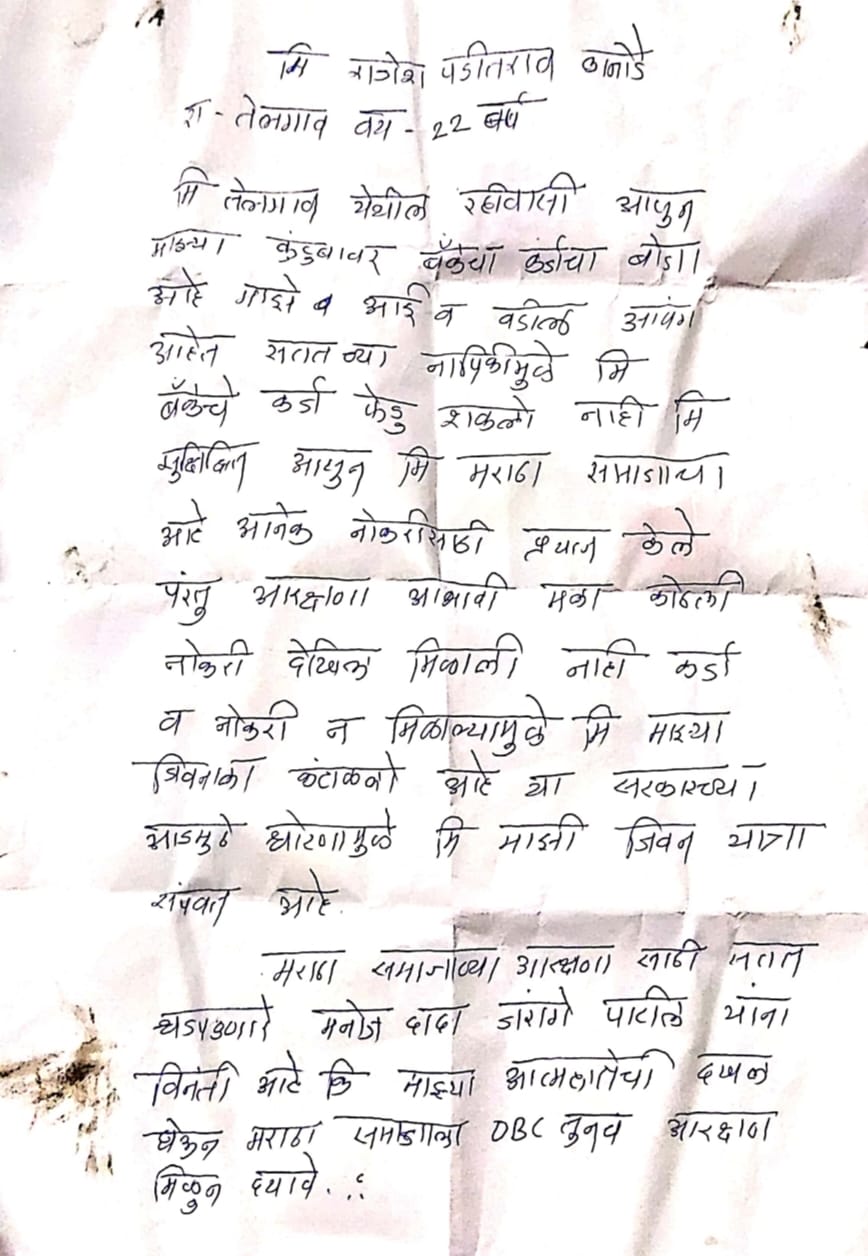 मि राजेश पडीतराव ठानोडे
रा - तेलगाव वय - 22 वर्ष
मि तेलगाव येथील रहीवासी आसुन
माझ्या कुंटुबावर बँकेचा कर्जाचा बोजा
आहे माझे व आई व वडील आपंग
आहेत सतत च्या नापिकीमुळे मि
बँकेचे कर्ज फेडु शकलो नाही मि
सुक्षिक्षित आसुन मि मराठा समाजाचा
आहे आनेक नोकरीसाठी प्रयत्न केले
परंतु आरक्षणा आभावी मका कोठली
नोकरी देखिल मिळाली नाही कर्ज
व नोकरी न मिळाल्यामुळे मि माझ्या
जिवनाला कंटाळलो आहे या सरकारच्या
आडमुठे धोरणामुळे मि माझी जिवन यात्रा
संपवत आहे.
मराठा समाजाच्या आरक्षणा साठी सतत
धडपडणारे मनोज दादा जरांगे पाटील यांना
विनंती आहे कि माझ्या आत्महातेची दखल
घेऊन मराठा समाजाला OBC तुनच आरक्षण
मिळुन दयावे.